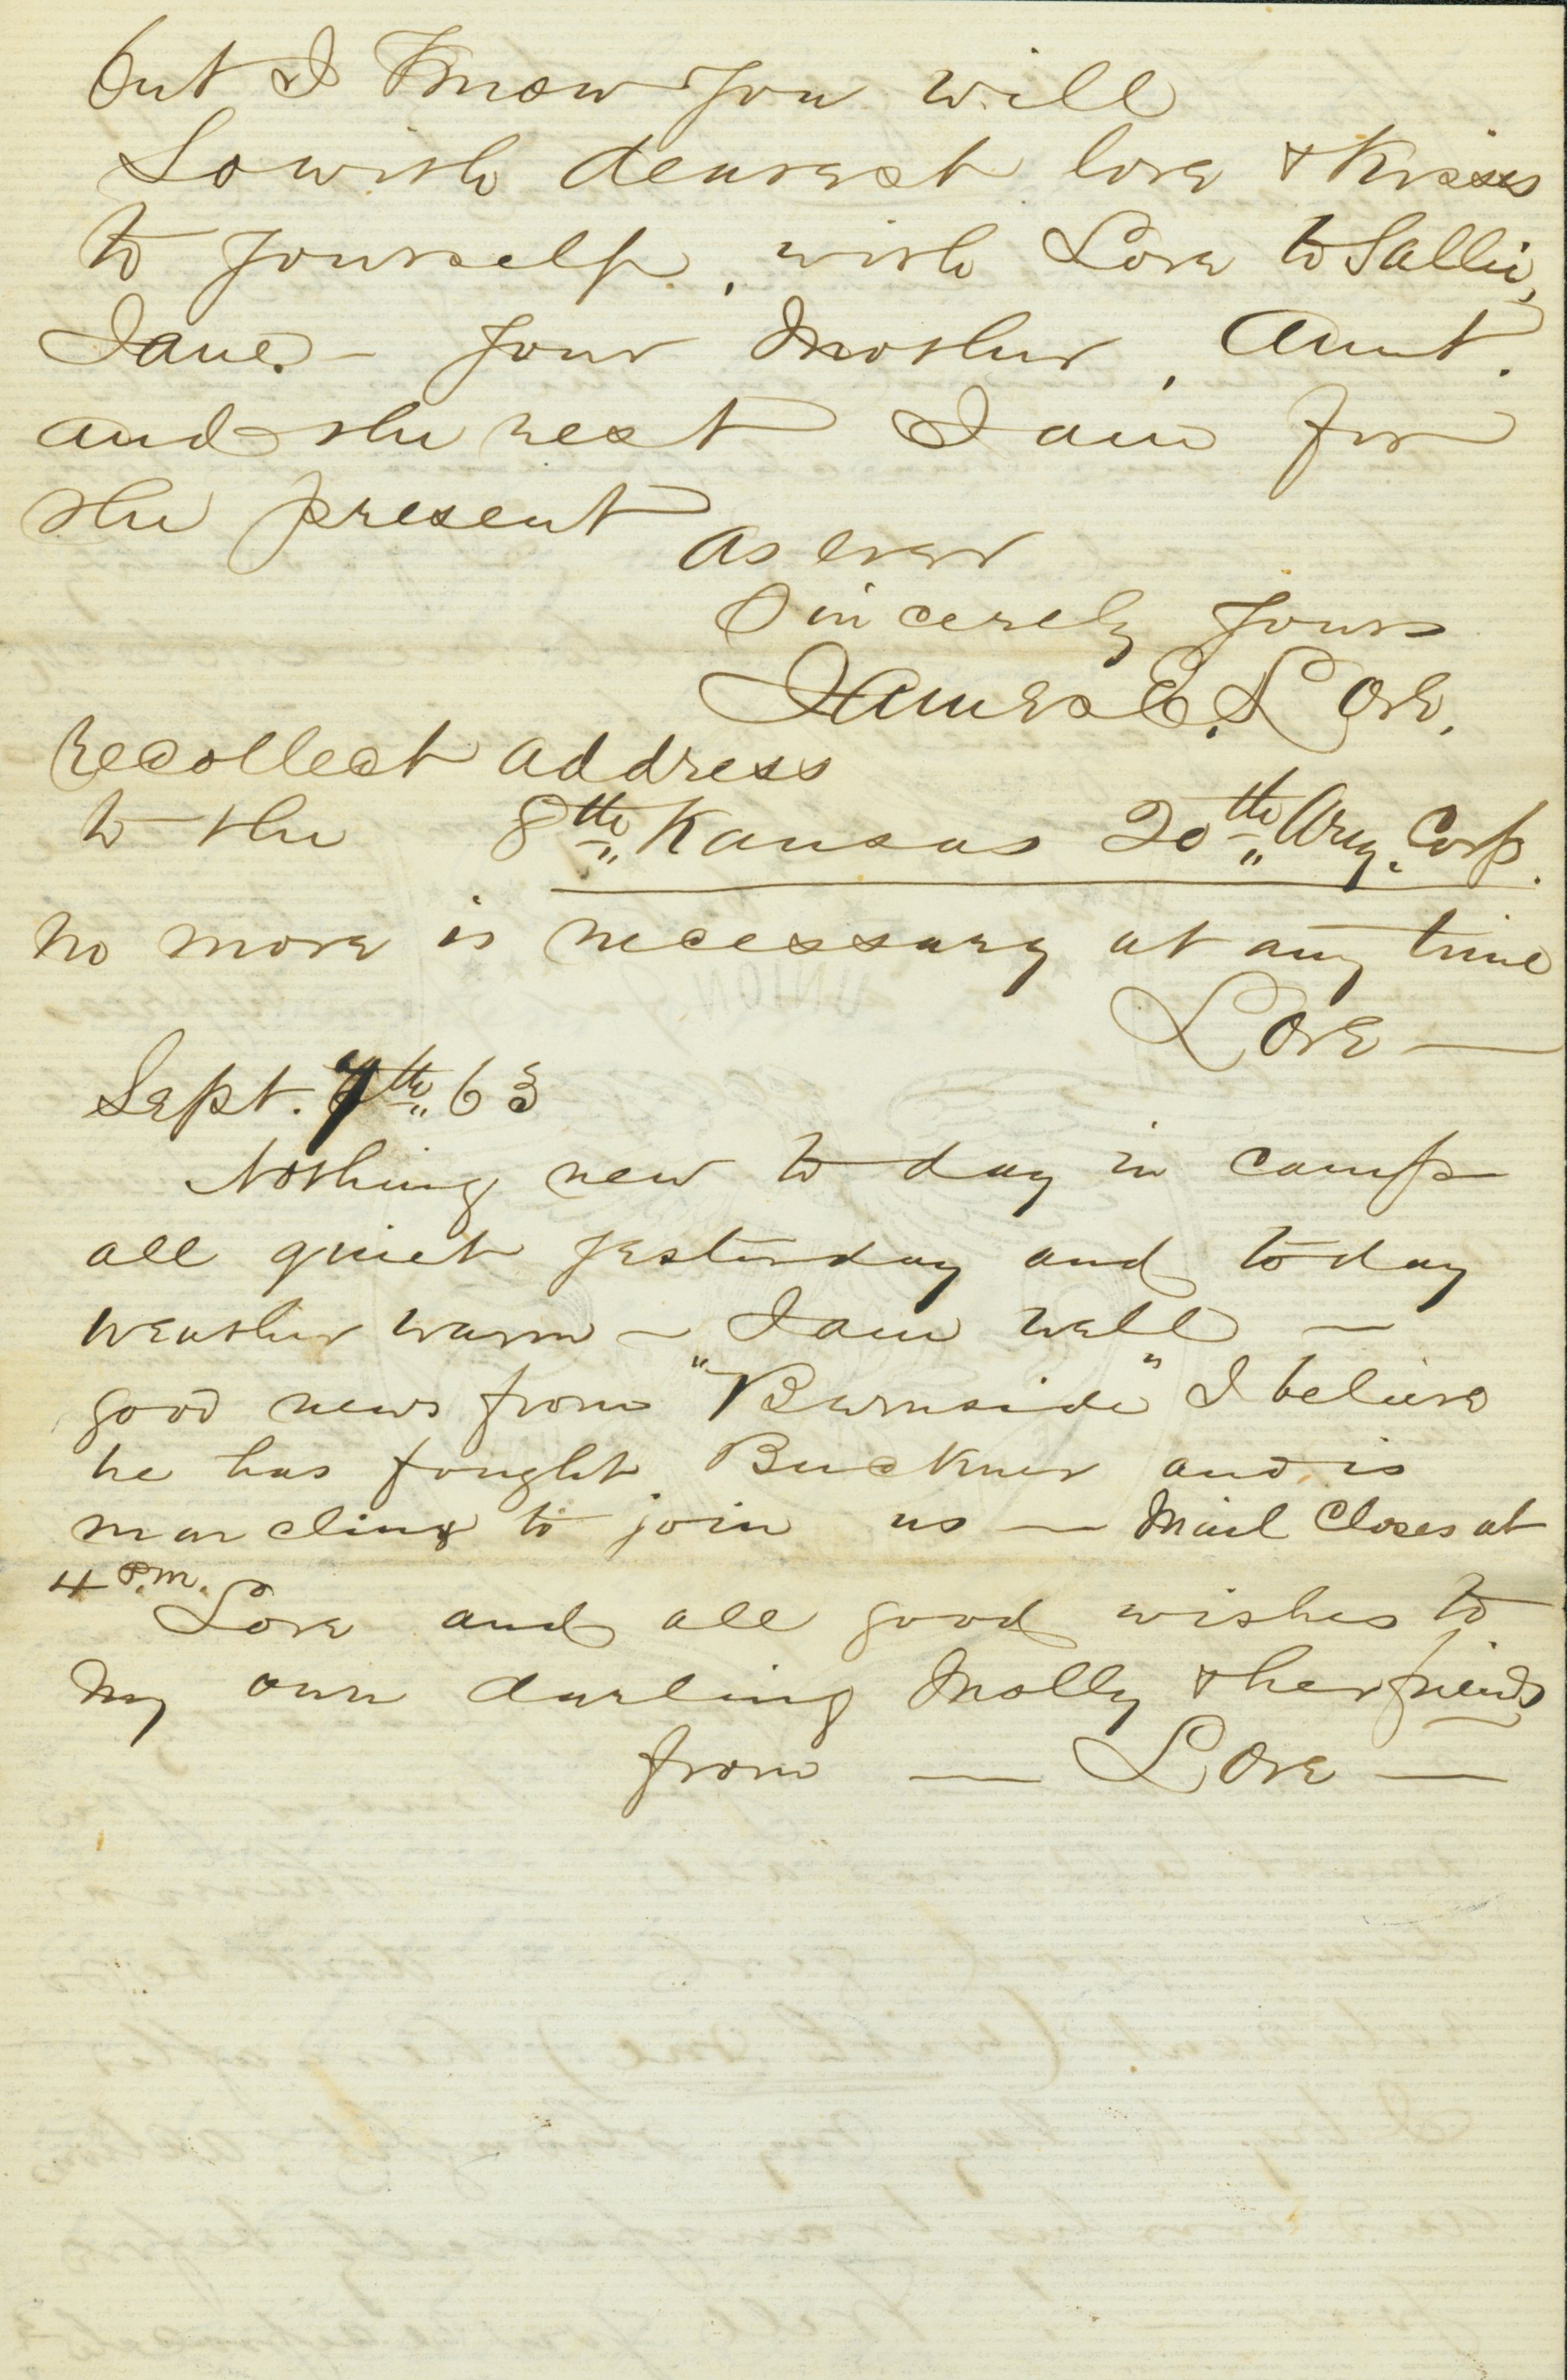 but I know you will
So with dearest love & kisses
to yourself, with Love to Sallie,
Jane. - your Mother, Aunt.
and the rest I am for
the present
as ever
Sincerely yours
James E. Love.
recollect address
to the 8th Kansas 20th Army. Corp.
no more is necessary at any time
Love —
Sept. 7th 63
Nothing new to day in camp
all quiet yesterday and to day
weather warm - I am well —
good news from "Burnside" I believe
he has fought Buckner and is
marching to join us — Mail Closes at
4 P.M.
Love and all good wishes to
my own darling Molly & her friends
from — Love —